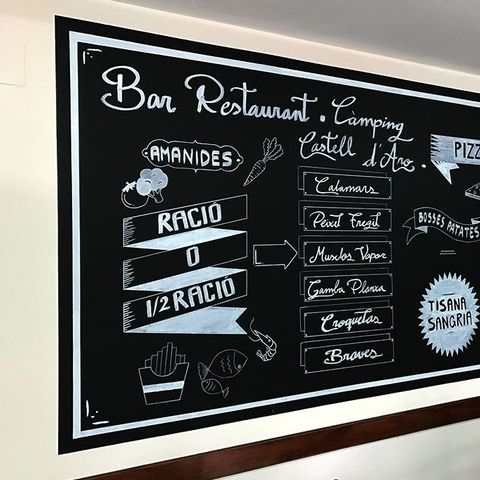 Bar Restaurant. Càmping
Castell d'Aro.
AMANIDES
RACIÓ
O
1/2 RACIÓ
Calamars
Peixit Fregit
Musclos Vapor
Gamba Planxa
Croquetas
Braves
PIZZ
BOSSES PATATES
TISANA
SANGRIA